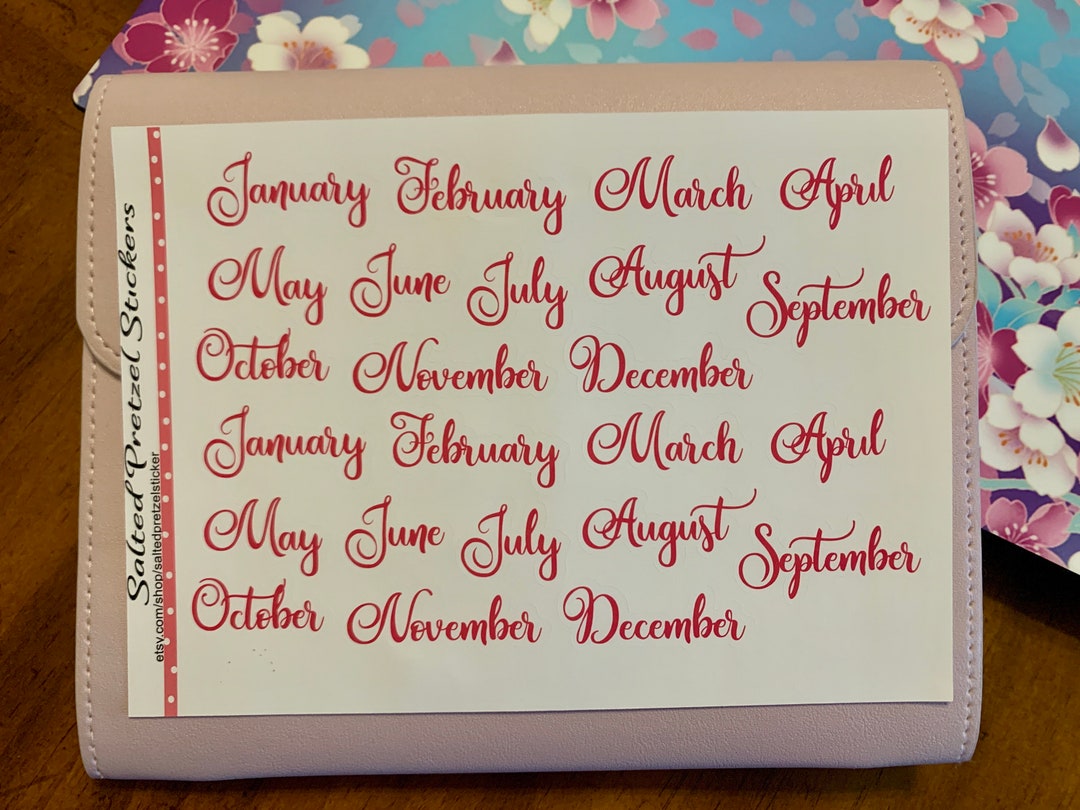 SaltedPretzel Stickers
etsy.com/shop/saltedpretzelsticker
January February March April
May June July August September
October November December
January February March April
May June July August September
October November December